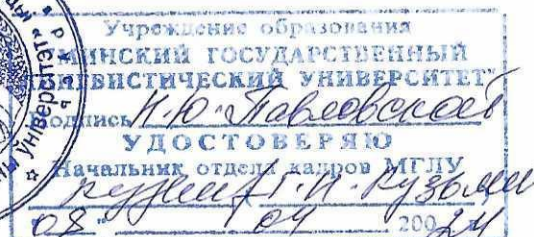 Учреждение образования
"МИНСКИЙ ГОСУДАРСТВЕННЫЙ
ЛИНГВИСТИЧЕСКИЙ УНИВЕРСИТЕТ"
Подпись Н.Ю. Павловской
УДОСТОВЕРЯЮ
Начальник отдела кадров МГЛУ
"08" 04 200 24